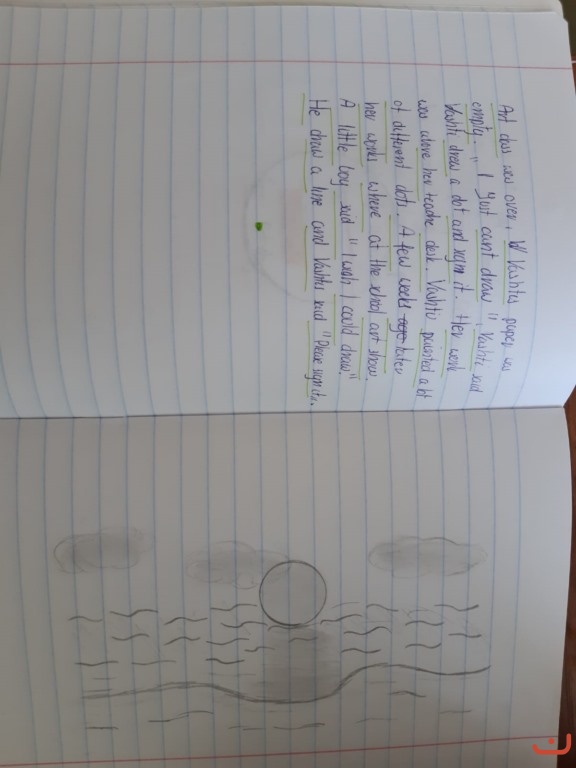 Art class was over, W Vashtis paper was
empty. " I just can't draw ", Vashti said
Vashti drew a dot and sign it. Her work
was above her teache desk. Vashti painted a lot
of different dots. A few weeks ago later
her works where at the school art show.
A little boy said " I wish I could draw."
He drew a line and Vashti said "Please sign it".
ن